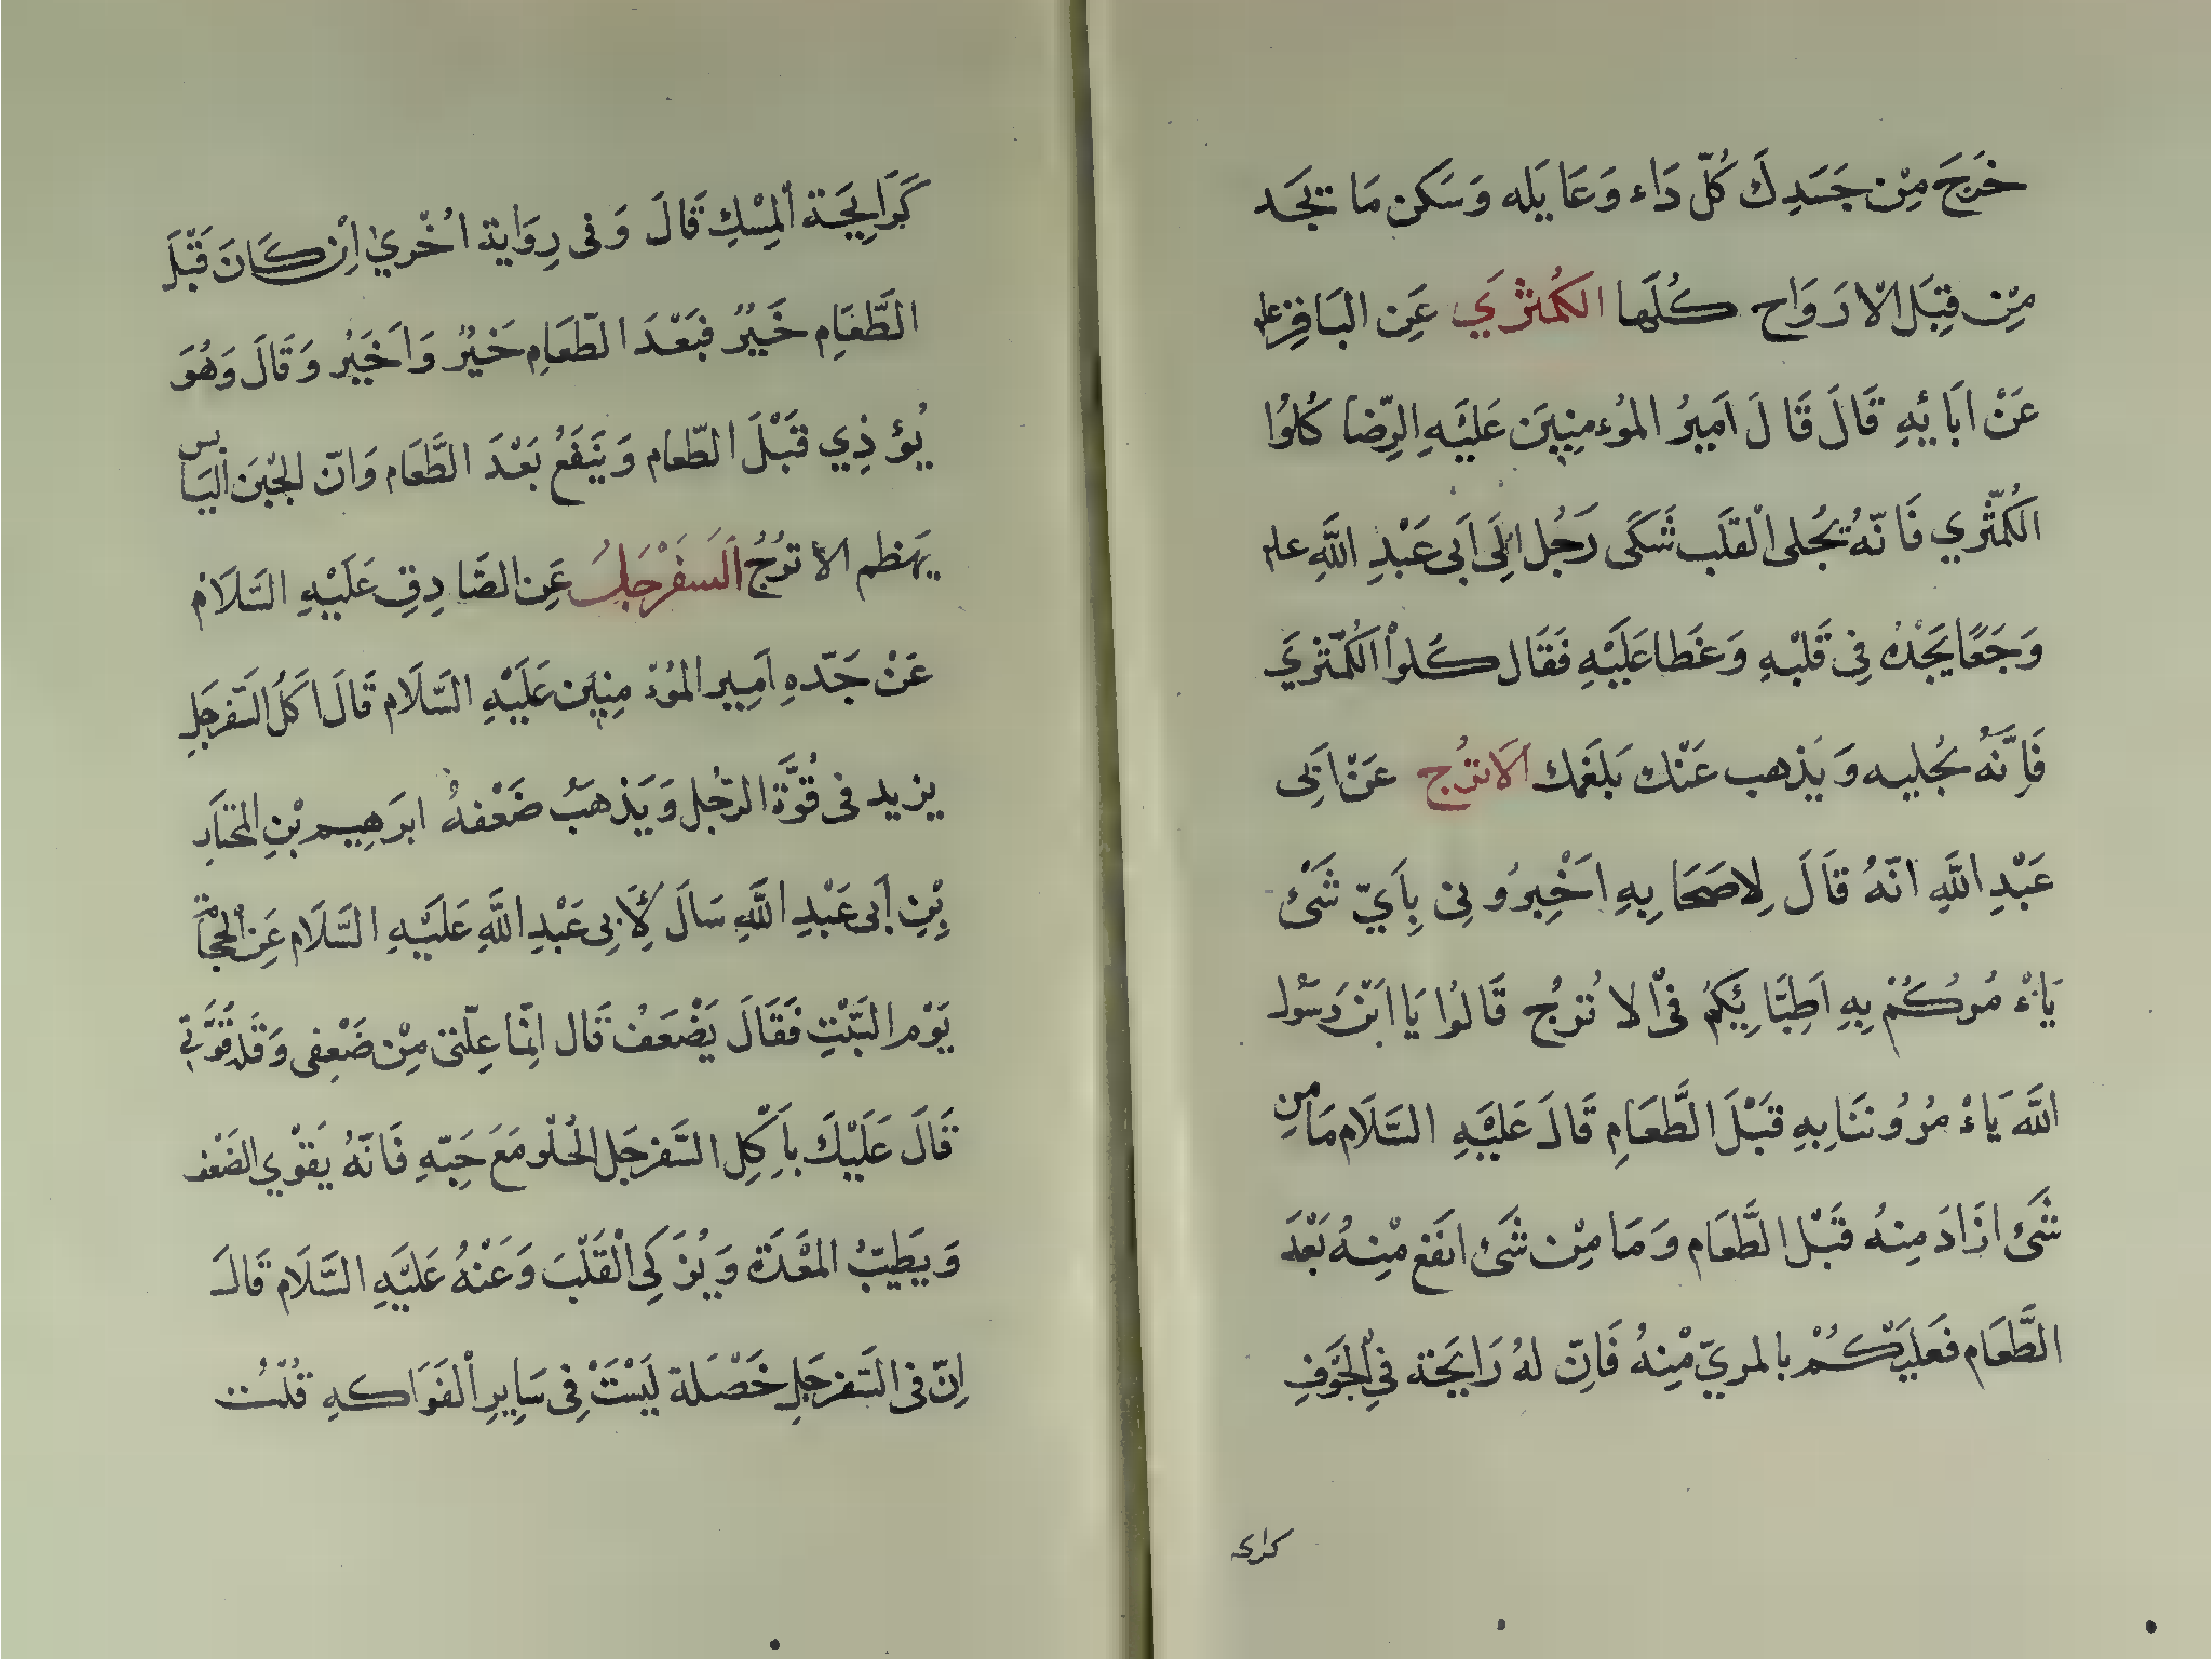 خَرَجَ مِنْ جَسَدِكَ كُلّ دَاء وَعَايَله وَسَكن مَا تجَد
مِنْ قِبَلِ الْارَوَاح كُلَها الكمُثرَي عَنِ البَاقِرِ علم
عَنْ ابَائِهِ قَالَ قَالَ اَمِيرُ المُوءمنِينَ عَليَهِ الرِّضا كُلوُا
الكُمّثرَي فَانّهُ يُجلى القلَب شَكَى رَجُل اِلَى اَبى عَبْدِ اللَّهِ علم
وَجَعًا يَجْدُه فِى قَلبْهِ وَغَطا عَلَيْهِ فَقَال كُلوْا الكُمّثرَي
فَاِنَّهُ يُجليه وَيَذهب عَنْك بَلغَمك الَاترُج عَنْ اَبِى
عَبْدِ اللَّهِ انّهُ قَالَ لِاصَحَابِهِ اخْبِروُنِى بِاَيّ شَىْ
يَاءْمُركُمْ بِهِ اَطِبَّائِكُمُ فىْ الاتُرجُ قَالوُا يَا ابْن رَسُول
اللَّه يَاءْمُروُنَنَا بِهِ قَبْلَ الطَّعَامِ قَالَ عَليَهِ السَّلَام مَا مِن
شَىْ ازَادَ مِنهُ قَبْل الطَّعَام وَمَا مِنْ شَىْ انفَع مْنِهُ بَعْدَ
الطَّعَام فعَليَكُمْ بالمربيّ مْنِهُ فَاِنّ لهُ رَايَحِة فىِ الجَوَفِ
كرايحة
كَرَايِحَة اَلمِسْكِ قَالَ وَفى رِوَاية اخُرْي اِنْ كَانَ قَبْلَ
الطَّعَامِ خَيرٌ فبَعْدَ الطّعَامِ خَيرٌ وَاَخَيرُ وَقَالَ وَهُوَ
يُؤذِي قَبْلَ الطّعَام وَيَنَفَعُ بَعْدَ الطَّعَام وَانّ الجْبَن اليَابس
يهَظم الاترُجُ اَلَسفَرْجَلُ عَنِ الصَّادِقِ عَلَيْهِ السَّلَام
عَنْ جَدّهِ اَمِير المُوءْمِنِين عَلَيْهِ السَّلَام قَالَ اَكلُ السَّفرجَلِ
يزيد فى قُوَّة الرّجُل وَيَذهبُ ضَعْفهُ ابرَهِيم بْنِ المختَارِ
بْنِ اَبى عَبْدِ اللَّهِ سَالَ لِاَبِى عَبْدِ اللَّهِ عَليَهِ السَّلَام عَنِ الْحجَامة
يَوْم السَّبْتِ فَقَالَ يَضْعَفُ قَال اِنّمَا عِلّتىِ مِنْ ضَعْفِى وَقلة قُوَّتي
قَالَ عَلَيْكَ بِاَكْلِ السَّفرجَل الْحُلو مَعَ حَبّهِ فَانّهُ يَقوْي الضَعْف
وَيَطيّبُ المْعَدَة وَيُزَكى اْلقَلْبَ وَعَنْهُ عَليَهِ السَّلَام قَالَ
اِنّ فى السَّفرجَلِ خَصْلَة لَيسْتَ فِى سَايِرِ اْلفَوَاكهِ قُلتُ